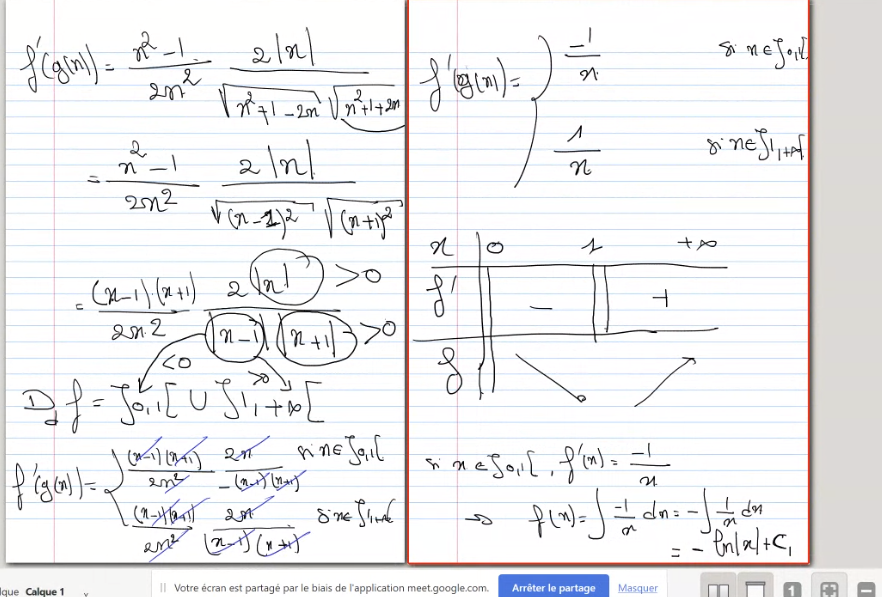 f'(g(x)) = x² - 1 / 2x² · 2|x| / √(x²+1-2x) √(x²+1+2x)
= x² - 1 / 2x² · 2|x| / √(x-1)² √(x+1)²
= (x-1)·(x+1) / 2x² · 2|x| / |x-1| |x+1| >0 >0
<0 >0
D_d f = ]0,1[ ∪ ]1,+∞[
f'(g(x)) = { (x-1)(x+1) / 2x² · 2x / -(x-1)(x+1) si x∈]0,1[
(x-1)(x+1) / 2x² · 2x / (x-1)(x+1) si x∈]1,+∞[
f'(g(x)) = -1 / x si x∈]0,1[
1 / x si x∈]1,+∞[
x 0 1 +∞
f' - +
f
si x∈]0,1[, f'(x) = -1 / x
⇒ f(x) = ∫ -1/x dx = -∫ 1/x dx
= -ln|x| + C₁
Calque 1
Votre écran est partagé par le biais de l'application meet.google.com. Arrêter le partage Masquer
1